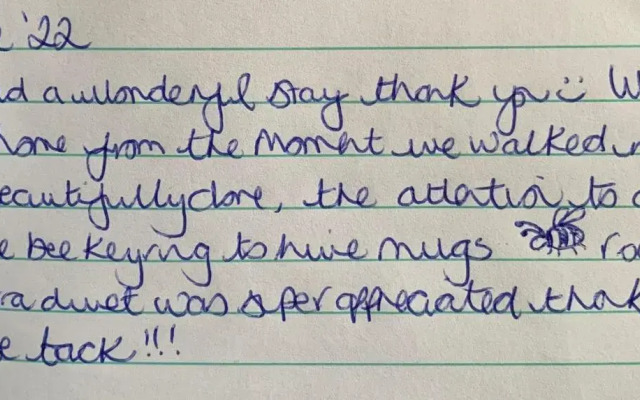 '22
a wonderful stay thank you :) W
from the moment we walked
eautifully done, the attention to
bee keyring to hive mugs
duvet was super appreciated thank
e tack!!!